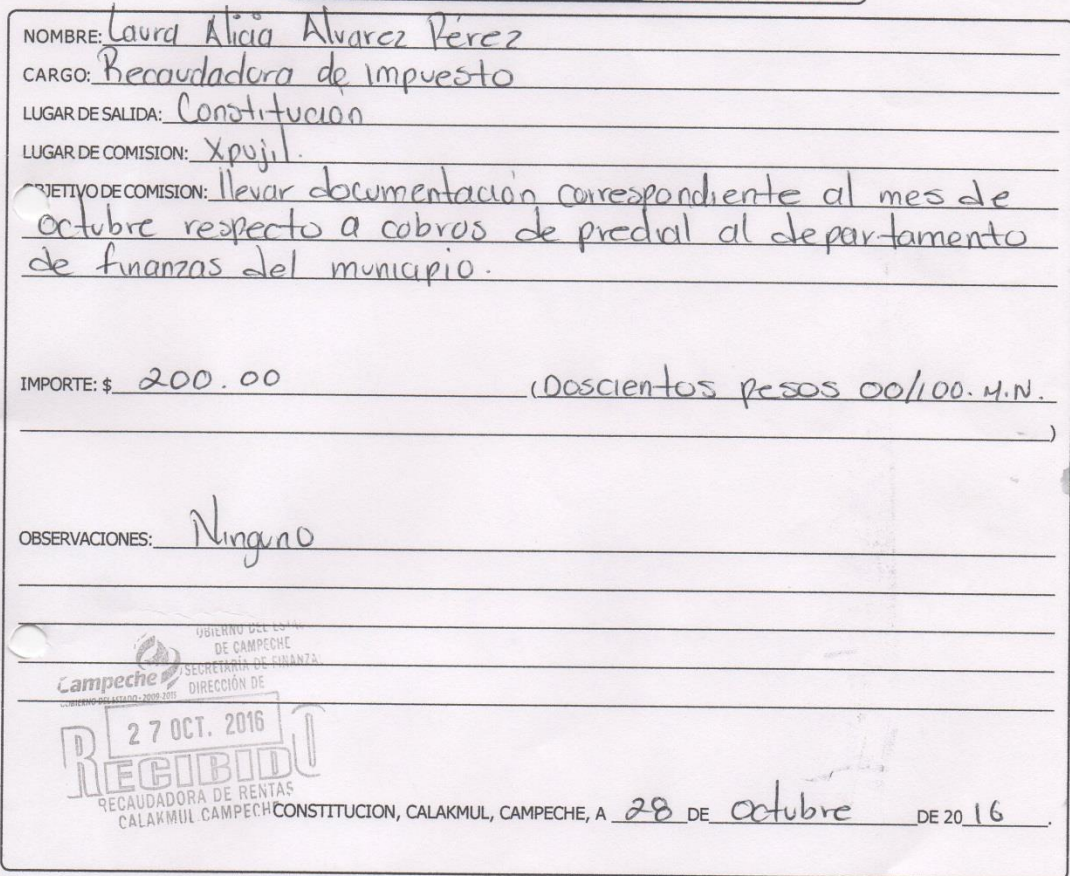 NOMBRE: Laura Alicia Alvarez Pérez
CARGO: Recaudadora de impuesto
LUGAR DE SALIDA: Constitución
LUGAR DE COMISION: Xpujil.
OBJETIVO DE COMISION: llevar documentación correspondiente al mes de
octubre respecto a cobros de predial al departamento
de finanzas del municipio.
IMPORTE: $ 200.00 (Doscientos pesos 00/100. M.N.
)
OBSERVACIONES: Ninguno
GOBIERNO DEL
DE CAMPECHE
SECRETARÍA DE FINANZA
DIRECCIÓN DE
Campeche
GOBIERNO DEL ESTADO
27 OCT. 2016
RECIBIDO
RECAUDADORA DE RENTAS
CALAKMUL CAMPECHE
CONSTITUCION, CALAKMUL, CAMPECHE, A 28 DE octubre DE 2016.